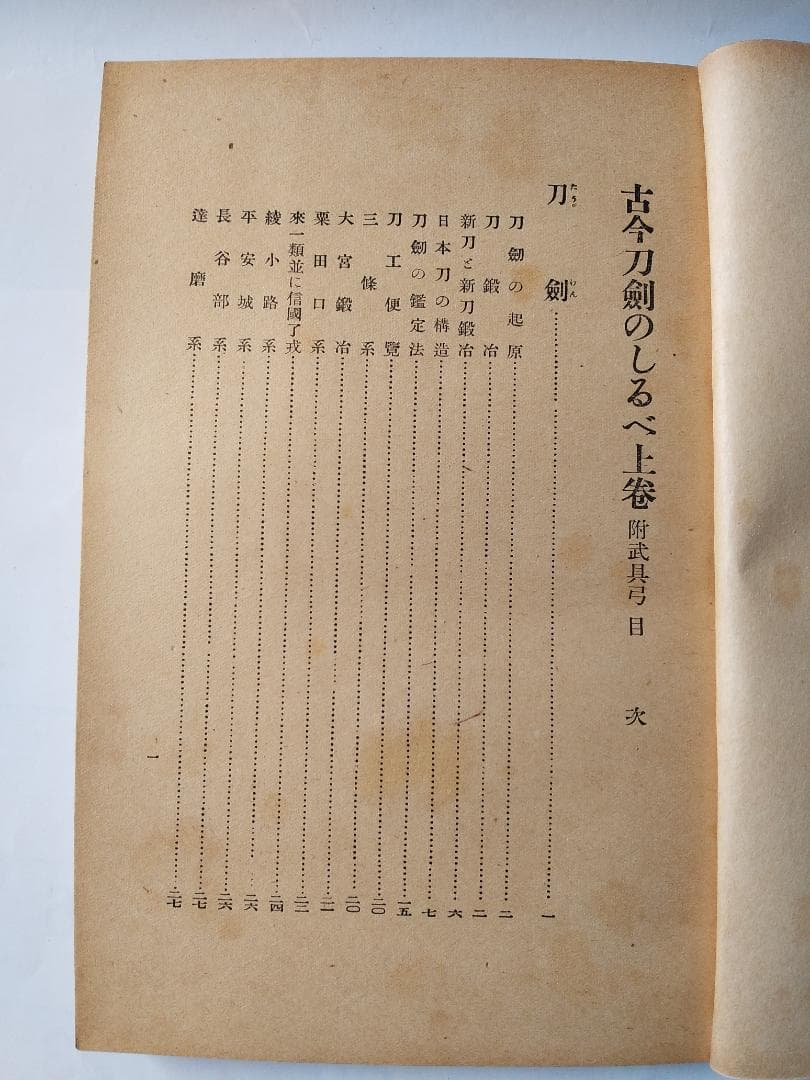 古今刀劍のしるべ上卷 附武具弓 目次
刀劍……一
刀劍の起原……二
刀鍛冶……二
新刀と新刀鍛冶……六
日本刀の構造……七
刀劍の鑑定法……一五
刀工便覽……二〇
三條系……二〇
大宮鍛冶……二一
粟田口系……二一
來一類並に信國了戎……二三
綾小路系……二四
平安城系……二六
長谷部系……二六
達磨系……二七
一